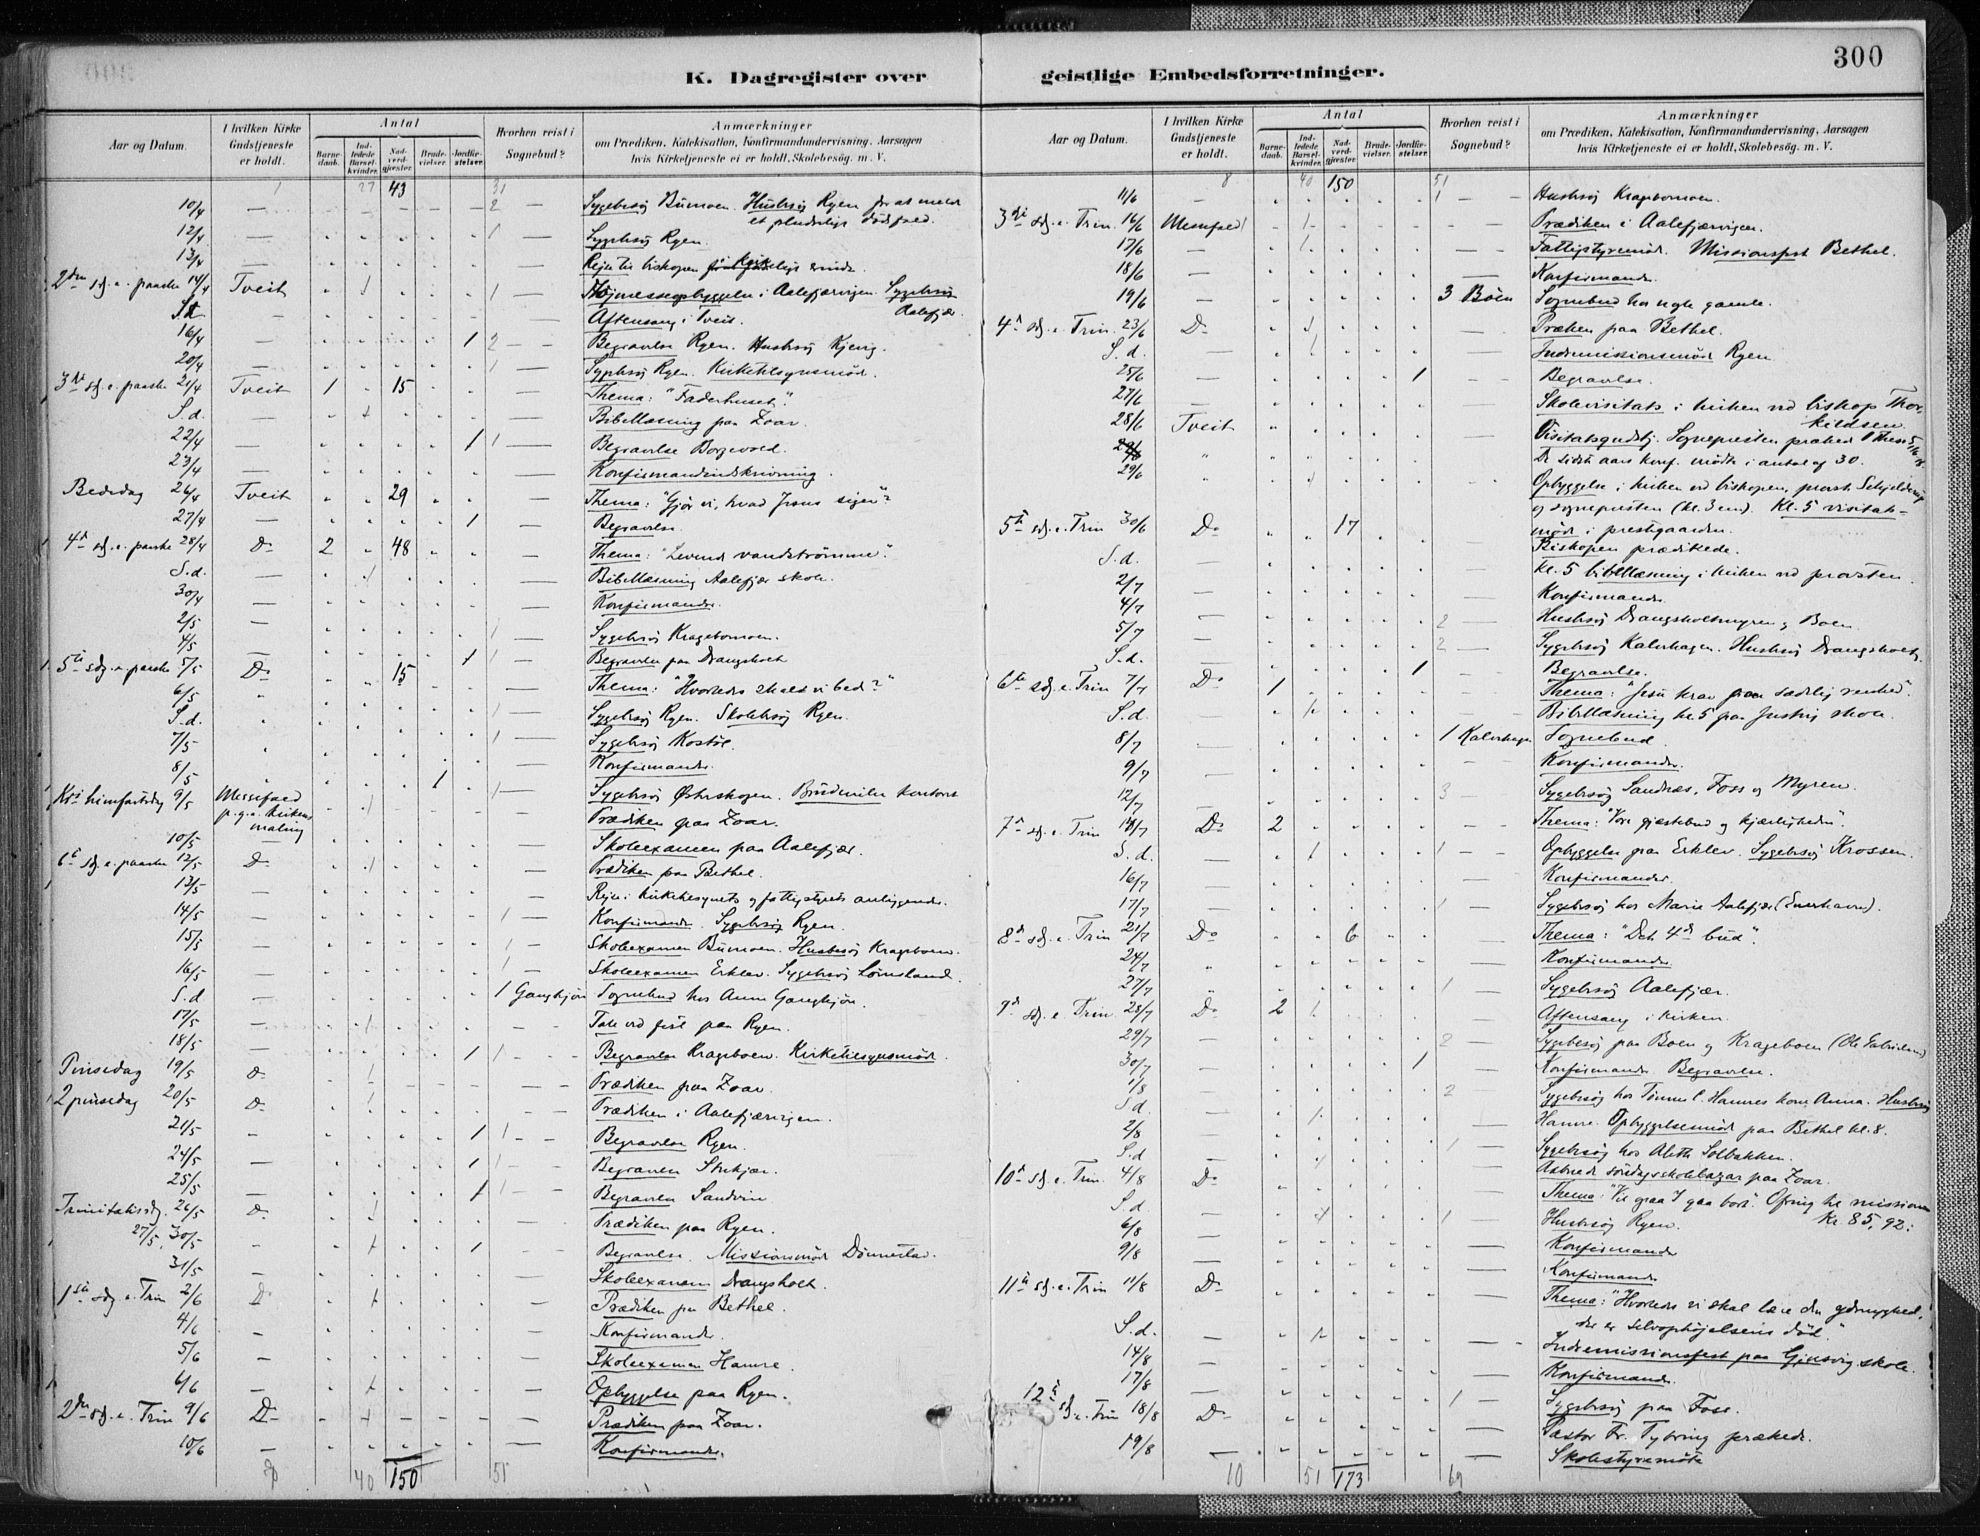 300
K. Dagregister over geistlige Embedsforretninger.
Aar og Datum.
I hvilken Kirke Gudstjeneste er holdt.
Antal
Barnedaab.
Indledede Barselkvinder.
Nadverdgjester.
Brudevielser.
Jordfæstelser.
Hvorhen reist i Sognebud?
Anmærkninger
om Prædiken, Katekisation, Konfirmandundervisning, Aarsagen
hvis Kirketjeneste ei er holdt, Skolebesög. m. V.
27 43 31
10/4 — 2 — Sygebesøg Bumoen. Husbesøg Ryen for at melde
et pludseligt dødsfald.
12/4 — 1 — Sygebesøg Ryen.
13/4 — Rejse til biskopen
2den sdg. e. paaske 14/4 Tveit 1 — Højmesseopbyggelse i Aalefjærvigen. Sygebesøg
Aalefjær.
S.d. — Aftensang i Tveit.
16/4 — 1 2 — Begravelse Ryen. Husbesøg Kjevig.
20/4 — 1 — Sygebesøg Ryen. Kirketilsynsmøde.
3die sdg. e. paaske 21/4 Tveit 1 15 — Thema: "Faderhuset".
S.d. — Bibellæsning paa Zoar.
22/4 — 1 1 — Begravelse Borgevold.
23/4 — Konfirmandindskrivning.
Bededag 26/4 Tveit 29 — Thema: "Gjør vi, hvad Jesus siger"?
27/4 — 1 Begravelse.
4de sdg. e. paaske 28/4 Do 2 48 — Thema: "Levende vandstrømme".
S.d. — Bibellæsning Aalefjær skole.
30/4 — Konfirmander.
2/5 — 1 — Sygebesøg Krageboen.
4/5 1 — Begravelse paa Drangsholt
5te sdg. e. paaske 5/5 Do 15 — Thema: "Hvorledes skal vi bede?"
6/5 1 — Sygebesøg Ryen. Skolebesøg Ryen.
S.d. 1 — Sygebesøg Kostøl.
7/5 — Konfirmander.
8/5 1 1 — Sygebesøg Østerskogen. Brudevielse kontoret
Kri himfartsdag 9/5 Messefald
p.g.a. kirkens
maling — Prædiken paa Zoar.
10/5 — Skoleexamen paa Aalefjær.
6te sdg. e. paaske 12/5 Do — Prædiken paa Bethel.
13/5 — Rejse i kirketilsynets og fattigstyrets anliggender.
14/5 — 1 — Konfirmander. Sygebesøg Ryen.
15/5 — 1 — Skoleexamen Bumoen. Husbesøg Krageboen.
16/5 — 1 — Skoleexamen Erklev. Sygebesøg Lømsland.
S.d — 1 Gangkjøn Sognebud hos Anne Gangkjøn.
17/5 — Tale ved fest paa Ryen.
18/5 — 1 1 — Begravelse Krageboen. Kirketilsynsmøde.
Pinsedag 19/5 Do — Prædiken paa Zoar.
2 pinsedag 20/5 Do — Prædiken i Aalefjærvigen.
21/5 — 1 1 — Begravelse Ryen.
24/5 — 1 1 — Begravelse
25/5 — 1 1 — Begravelse Sandvin
Trinitatissdg. 26/5 Do — Prædiken paa Ryen.
27/5, 30/5 — 1 — Begravelse. Missionsmøde Dønnestad.
31/5 — Skoleexamen Drangsholt.
1ste sdg. e. Trin 2/6 Do — Prædiken paa Bethel.
4/6 — Konfirmander.
5/6 — Skoleexamen Hamre.
6/6 — Opbyggelse paa Ryen.
2den sdg. e. Trin 9/6 Do — Prædiken paa Zoar.
10/6 — Konfirmander.
40 150 51
Aar og Datum.
I hvilken Kirke Gudstjeneste er holdt.
Antal
Barnedaab.
Indledede Barselkvinder.
Nadverdgjester.
Brudevielser.
Jordfæstelser.
Hvorhen reist i Sognebud?
Anmærkninger
om Prædiken, Katekisation, Konfirmandundervisning, Aarsagen
hvis Kirketjeneste ei er holdt, Skolebesög. m. V.
8 40 150 51
11/6 — 1 — Husbesøg Krageboen.
3die sdg. e. Trin. 16/6 Messefald — Prædiken i Aalefjærvigen.
17/6 — Fattigstyremøde. Missionsfest Bethel.
18/6 — Konfirmander.
19/6 — 3 Boen Sognebud hos nogle gamle.
4de sdg. e. Trin. 23/6 Do — Præken paa Bethel.
S.d. — Indremissionsmøde Ryen
25/6 — 1 Begravelse.
27/6 — Skolevisitats i kirken ved biskop Thorkildsen.
28/6 Tveit — Visitatsgudstj. Sognepresten præked 1 Thess 5
De sidste aars konf. mødte i antal af 30.
29/6 Opbyggelse i kirken ved biskopen, provst Schjelderup
og sognepresten (kl. 3 em). Kl. 5 visitatsmøde i prestgaarden.
5te sdg. e. Trin 30/6 Do 17 — Biskopen prædikede.
S.d. — Kl. 5 bibellæsning i kirken ved provsten.
2/7 — Konfirmander
4/7 — 2 — Husbesøg Drangsholtmyren og Boen.
5/7 — 2 — Sygebesøg Kalvehagen. Husbesøg Drangsholt.
S.d. — 1 Begravelse.
6te sdg. e. Trin 7/7 Do 1 Thema: "Jesu krav paa sædelig renhed".
S.d. — Bibellæsning kl. 5 paa Justvig skole.
8/7 — 1 Kalvehagen Sognebud.
9/7 — Konfirmander.
12/7 — 3 — Sygebesøg Sandnæs, Foss og Myren.
7de sdg. e. Trin 14/7 Do 2 — Thema: "Vore gjæstebud og kjærligheden".
S.d. — 1 — Opbyggelse paa Erklev. Sygebesøg Krossen.
16/7 — Konfirmander.
17/7 — 1 — Sygebesøg hos Marie Aalefjær
8de sdg. e. Trin 21/7 Do 6 — Thema: "Det 4de bud".
24/7 Konfirmander
27/7 1 — Sygebesøg Aalefjær.
9de sdg. e. Trin. 28/7 Do 2 Aftensang i kirken.
29/7 — 2 — Sygebesøg paa Boen og Krageboen
30/7 — 1 Konfirmander. Begravelse.
1/8 2 Sygebesøg hos Tønnes C. Hamres kone Anna. Husbesøg
S.d. — Hamre. Opbyggelsesmøde paa Bethel kl. 8.
2/8 — 1 — Sygebesøg hos Aleth Solbakken.
S.d — Aabnede søndagsskolebazar paa Zoar.
10de sdg. e. Trin. 4/8 Do Thema: "Vil ogsaa I gaa bort". Ofring til missionen
Kr. 85,92:
S.d. — 1 — Husbesøg Ryen.
6/8 — Konfirmander
9/8 — Konfirmander
11te sdg. e. Trin 11/8 Do — Thema: "Hvorledes vi skal lære den ydmyghed,
der er selvophøjelsens død."
S.d. — Indremissionsfest paa Gjusvig skole.
14/8 — Konfirmander.
17/8 — 1 — Sygebesøg paa Foss.
12te sdg. e. Trin 18/8 Do — Pastor Fr. Tybring prækede.
19/8 — Skolestyremøte
10 51 173 69